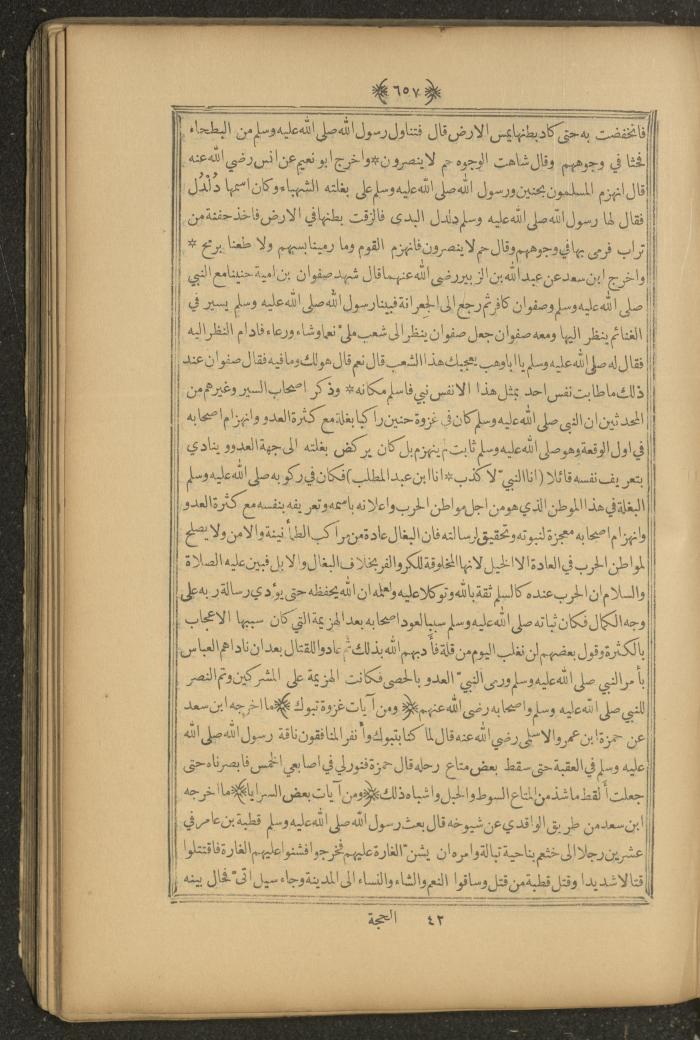 ﴿٦٥٧﴾
فانخفضت به حتى كاد بطنها يمس الارض قال فتناول رسول الله صلى الله عليه وسلم من البطحاء
فحثا في وجوههم وقال شاهت الوجوه حم لا ينصرون * واخرج ابو نعيم عن انس رضي الله عنه
قال انهزم المسلمون بحنين ورسول الله صلى الله عليه وسلم على بغلته الشهباء وكان اسمها دُلْدُل
فقال لها رسول الله صلى الله عليه وسلم دلدل البدى فالزقت بطنها في الارض فاخذ حفنة من
تراب فرمى بها في وجوههم وقال حم لا ينصرون فانهزم القوم وما رمينا بسهم ولا طعنا برمح *
واخرج ابن سعد عن عبد الله بن الزبير رضي الله عنهما قال شهد صفوان بن امية حنينا مع النبي
صلى الله عليه وسلم وصفوان كافر ثم رجع الى الجعرانة فبينا رسول الله صلى الله عليه وسلم يسير في
الغنائم ينظر اليها ومعه صفوان جعل صفوان ينظر الى شعب ملئ نعما وشاء ورعاء فادام النظر اليه
فقال له صلى الله عليه وسلم يا ابا وهب يعجبك هذا الشعب قال نعم قال هو لك وما فيه فقال صفوان عند
ذلك ما طابت نفس احد بمثل هذا الا نفس نبي فاسلم مكانه * وذكر اصحاب السير وغيرهم من
المحدثين ان النبي صلى الله عليه وسلم كان في غزوة حنين راكبا بغلة مع كثرة العدو وانهزام اصحابه
في اول الوقعة وهو صلى الله عليه وسلم ثابت لم ينهزم بل كان يركض بغلته الى جهة العدو وينادي
بتعريف نفسه قائلا (انا النبيّ لا كذب * انا ابن عبد المطلب) فكان في ركوبه صلى الله عليه وسلم
البغلة في هذا الموطن الذي هو من اجل مواطن الحرب واعلانه باسمه وتعريفه بنفسه مع كثرة العدو
وانهزام اصحابه معجزة لنبوته وتحقيق لرسالته فان البغال عادة من مراكب الطمأنينة والامن ولا يصلح
لمواطن الحرب في العادة الا الخيل لانها المخلوقة للكر والفر بخلاف البغال والابل فبين عليه الصلاة
والسلام ان الحرب عنده كالسلم ثقة بالله وتوكلا عليه ولعلمه ان الله يحفظه حتى يؤدي رسالة ربه على
وجه الكمال فكان ثباته صلى الله عليه وسلم سببا لعود اصحابه بعد الهزيمة التي كان سببها الاعجاب
بالكثرة وقول بعضهم لن نغلب اليوم من قلة فأدبهم الله بذلك ثم عادوا للقتال بعد ان ناداهم العباس
بأمر النبي صلى الله عليه وسلم ورمى النبيّ العدو بالحصى فكانت الهزيمة على المشركين وتم النصر
للنبي صلى الله عليه وسلم واصحابه رضي الله عنهم ﴿ ومن آيات غزوة تبوك ﴾ ما اخرجه ابن سعد
عن حمزة ابن عمرو الاسلمي رضي الله عنه قال لما كنا بتبوك وأنفر المنافقون ناقة رسول الله صلى الله
عليه وسلم في العقبة حتى سقط بعض متاع رحله قال حمزة فنور لي في اصابعي الخمس فابصرناه حتى
جعلت ألقط ما شذ من المتاع السوط والحبل واشباه ذلك ﴿ ومن آيات بعض السرايا ﴾ ما اخرجه
ابن سعد من طريق الواقدي عن شيوخه قال بعث رسول الله صلى الله عليه وسلم قطبة بن عامر في
عشرين رجلا الى خثعم بناحية تبالة وامره ان يشنّ الغارة عليهم فخرجوا فشنوا عليهم الغارة فاقتتلوا
قتالا شديدا وقتل قطبة من قتل وساقوا النعم والشاء والنساء الى المدينة وجاء سيل اتىّ فحال بينه
٤٢ الحجة